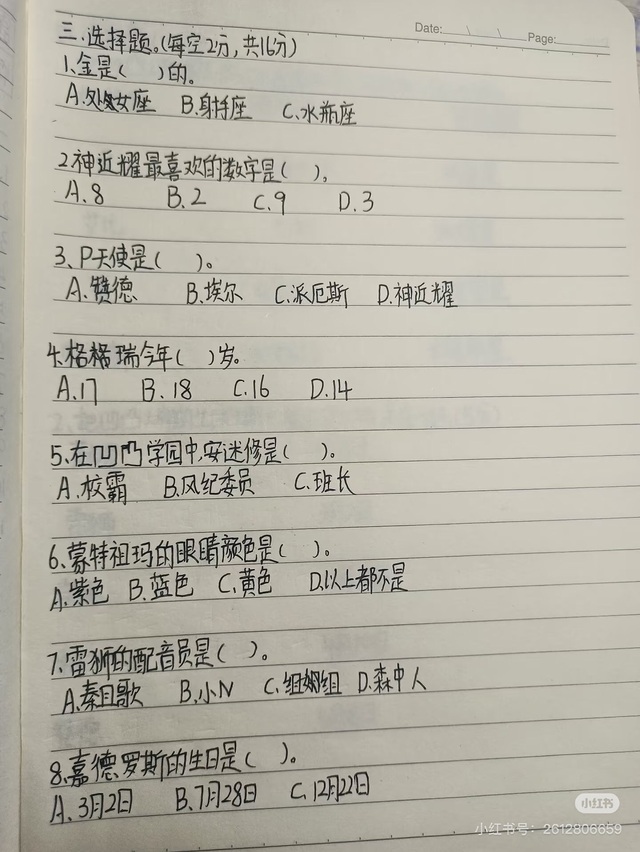 Date: \ \ Page:
三.选择题。(每空2分,共16分)
1.金是( )的。
A.处女座 B.射手座 C.水瓶座
2.神近耀最喜欢的数字是( )。
A.8 B.2 C.9 D.3
3、P天使是( )。
A.赞德 B.埃尔 C.派厄斯 D.神近耀
4.格格瑞今年( )岁。
A.17 B.18 C.16 D.14
5.在凹凸学园中,安迷修是( )。
A.校霸 B.风纪委员 C.班长
6.蒙特祖玛的眼睛颜色是( )。
A.紫色 B.蓝色 C.黄色 D.以上都不是
7.雷狮的配音员是( )。
A.秦且歌 B.小N C.组娴组 D.森中人
8.嘉德罗斯的生日是( )。
A.3月2日 B.7月28日 C.12月22日
小红书
小红书号:2612806659